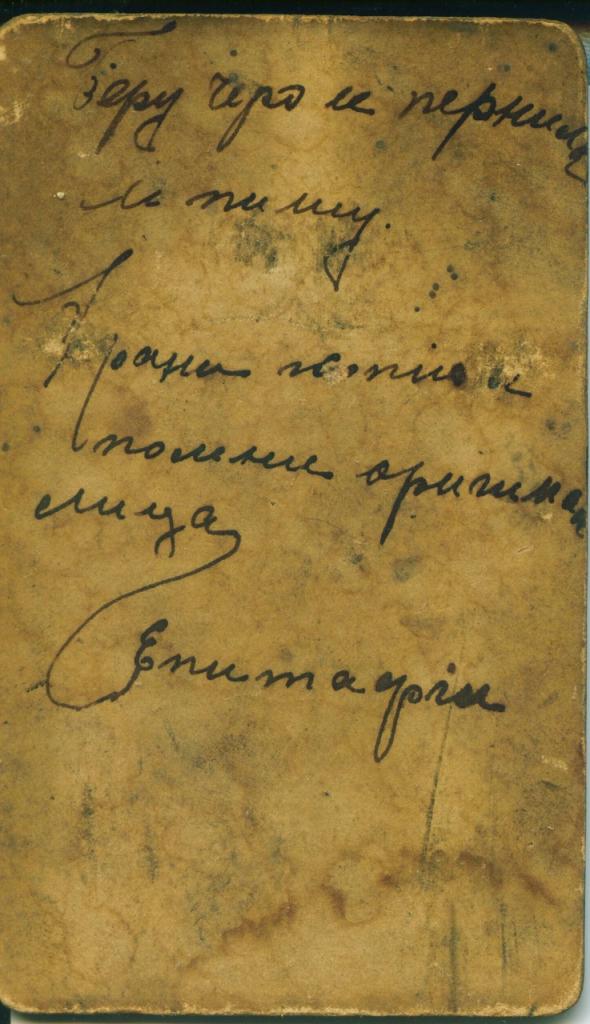 Беру перо и чернила
и пишу.
Храни копію и
помни оригинал
лица
Епитафіи